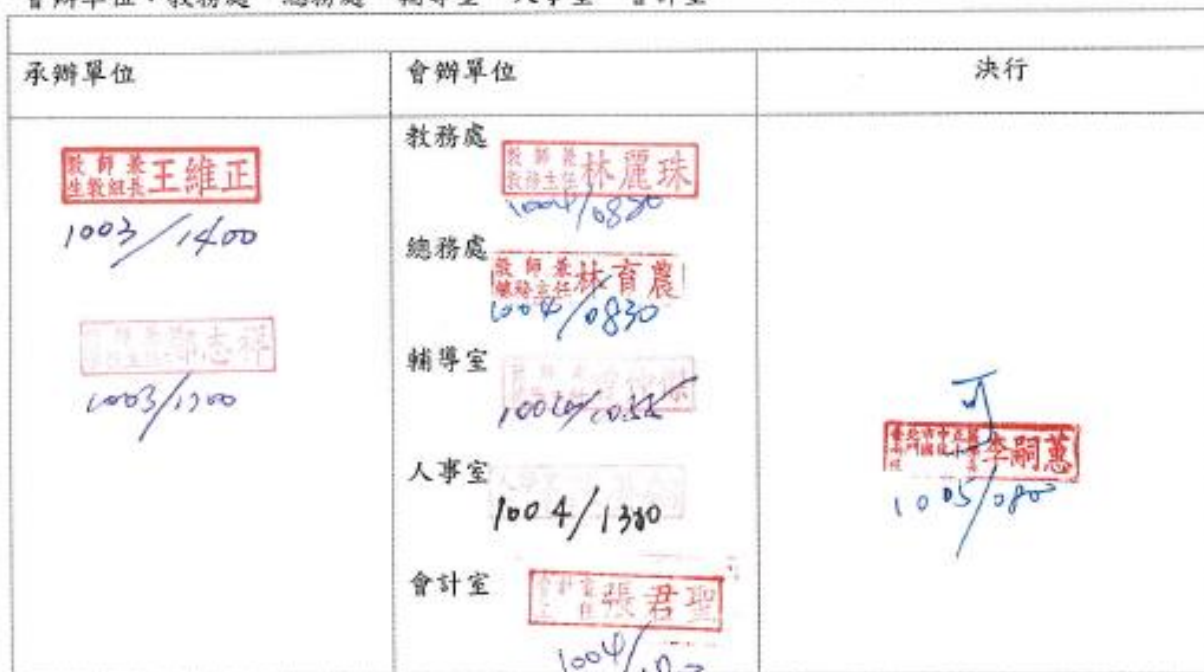 會辦單位：教務處、總務處、輔導室、人事室、會計室
承辦單位
會辦單位
決行
教師兼
生教組長 王維正
1003/1400
志祥
1003/1500
教務處
教師兼
教務主任 林麗珠
1004/0830
總務處
教師兼
總務主任 林育農
1004/0830
輔導室
人事室
1004/1300
會計室
張君聖
1004/
可
李嗣蕙
1005/0800